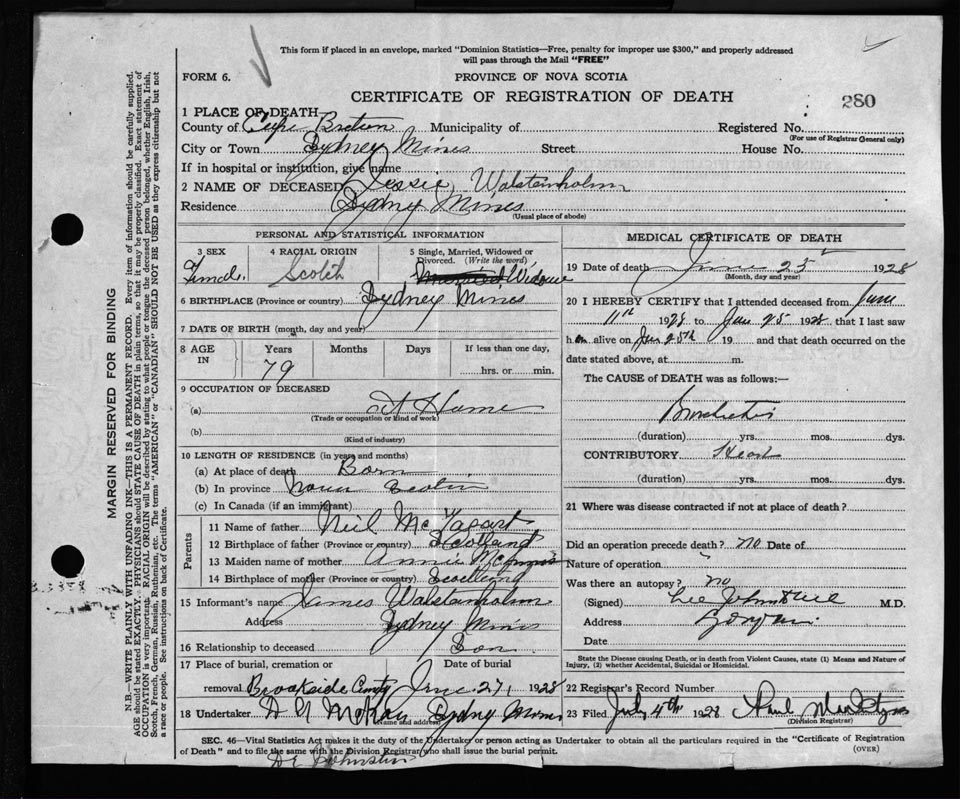 This form if placed in an envelope, marked "Dominion Statistics—Free, penalty for improper use $300," and properly addressed
will pass through the Mail "FREE"
FORM 6.
PROVINCE OF NOVA SCOTIA
CERTIFICATE OF REGISTRATION OF DEATH
280
1 PLACE OF DEATH
County of Cape Breton Municipality of Registered No.
(For use of Registrar General only)
City or Town Sydney Mines Street House No.
If in hospital or institution, give name
2 NAME OF DECEASED Jessie Walstenholm
Residence Sydney Mines
(Usual place of abode)
PERSONAL AND STATISTICAL INFORMATION
3 SEX
4 RACIAL ORIGIN
5 Single, Married, Widowed or Divorced. (Write the word)
Female Scotch Married, Widow
6 BIRTHPLACE (Province or country) Sydney Mines
7 DATE OF BIRTH (month, day and year)
8 AGE IN
Years Months Days If less than one day,
79
hrs. or min.
9 OCCUPATION OF DECEASED
(a) At Home
(Trade or occupation or kind of work)
(b)
(Kind of industry)
10 LENGTH OF RESIDENCE (in years and months)
(a) At place of death Born
(b) In province Nova Scotia
(c) In Canada (if an immigrant)
Parents
11 Name of father Neil McTagart
12 Birthplace of father (Province or country) Scotland
13 Maiden name of mother Annie McGinnis
14 Birthplace of mother (Province or country)
15 Informant's name James Walstenholm
Address Sydney Mines
16 Relationship to deceased Son
17 Place of burial, cremation or removal Date of burial
Brookside Cmty June 27, 1928
18 Undertaker McKay Sydney Mines
(Name and address)
MEDICAL CERTIFICATE OF DEATH
19 Date of death June 25 1928
(Month, day and year)
20 I HEREBY CERTIFY that I attended deceased from June
11th 1928 to Jun 25 1928 that I last saw
h alive on Jun 25th 19 and that death occurred on the
date stated above, at m.
The CAUSE OF DEATH was as follows:
Bronchitis
(duration) yrs. mos. dys.
CONTRIBUTORY Heart
(duration) yrs. mos. dys.
21 Where was disease contracted if not at place of death?
Did an operation precede death? no Date of
Nature of operation
Was there an autopsy? no
(Signed) M.D.
Address
Date
State the Disease causing Death, or in death from Violent Causes, state (1) Means and Nature of
Injury, (2) whether Accidental, Suicidal or Homicidal.
22 Registrar's Record Number
23 Filed July 4th 1928
(Division Registrar)
SEC. 46—Vital Statistics Act makes it the duty of the Undertaker or person acting as Undertaker to obtain all the particulars required in the "Certificate of Registration
of Death" and to file the same with the Division Registrar who shall issue the burial permit.
(OVER)
Dr Johnston
MARGIN RESERVED FOR BINDING
N.B.—WRITE PLAINLY WITH UNFADING INK—THIS IS A PERMANENT RECORD. Every item of information should be carefully supplied.
AGE should be stated EXACTLY. PHYSICIANS should STATE CAUSE OF DEATH in plain terms, so that it may be properly classified. Exact statement of
OCCUPATION is very important. RACIAL ORIGIN will be described by stating to what people or tongue the deceased person belonged, whether English, Irish,
Scotch, French, German, Russian, Ruthenian, etc. The terms "AMERICAN" or "CANADIAN" SHOULD NOT BE USED as they express citizenship but not
a race or people. See instructions on back of Certificate.